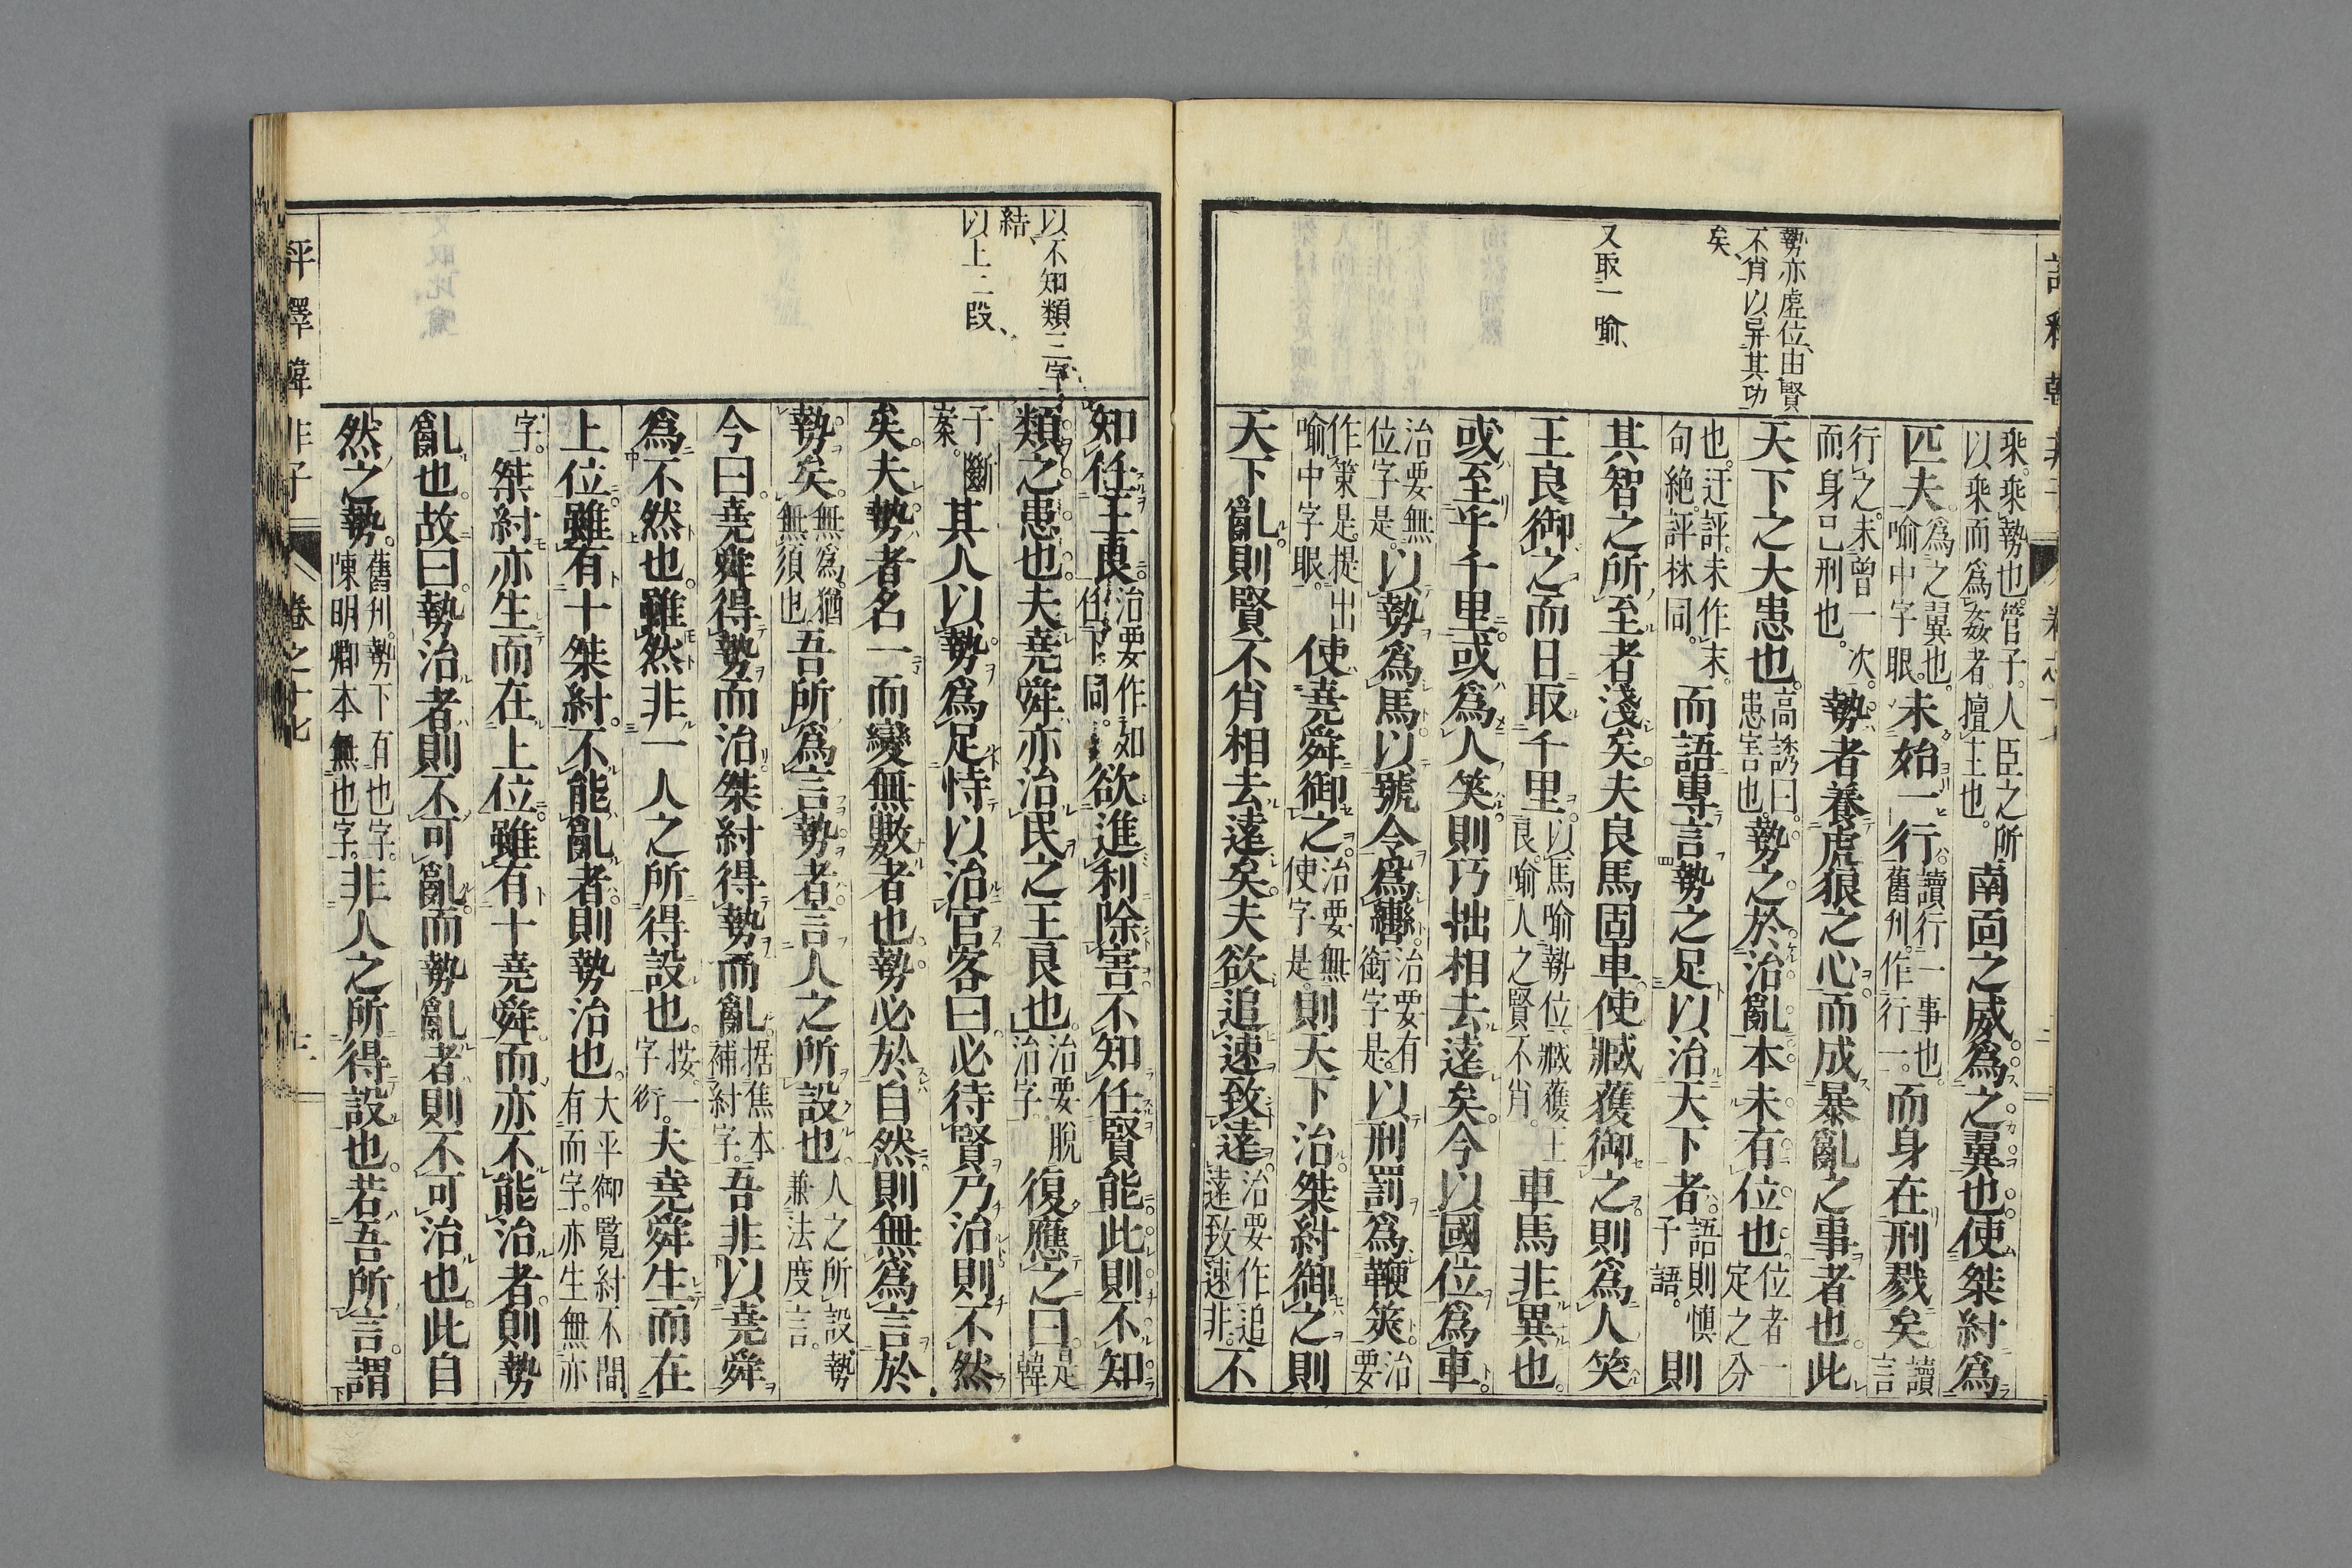 勢亦虛位、由賢
不肖以异其功
矣、
又取一喻、
乘。乘勢也。管子。人臣之所
以乘而爲姦者。擅主也。南面之威爲之翼也使桀紂爲
匹夫爲之翼也。
喻中字眼。未始一行讀行一事也。
舊刋。作行一。而身在刑戮矣讀
言
行之。未曾一次。
而身已刑也。勢者養虎狼之心而成暴亂之事者也此
天下之大患也高誘曰。
患害也。勢之於治亂本未有位也位者一
定之分
也。迂評。未作末。
句絶。評林同。而語專言勢之足以治天下者語則愼
子語。則
其智之所至者淺矣夫良馬固車使臧獲御之則爲人笑
王良御之而日取千里以馬喻勢位。臧獲王
良。喻人之賢不肖。車馬非異也
或至乎千里或爲人笑則巧拙相去遠矣今以國位爲車
治要無
位字是。以勢爲馬以號令爲轡治要有
銜字是。以刑罰爲鞭筴治
要
作策是。提出
喻中字眼。使堯舜御之治要無
使字是。則天下治桀紂御之則
天下亂則賢不肖相去遠矣夫欲追速致遠治要作追
遠致速非。不
以不知類三字
結、
以上二段、
知任王良治要作如
任下同。欲進利除害不知任賢能此則不知
類之患也夫堯舜亦治民之王良也治要脫
治字。復應之曰是
韓
子斷
案。其人以勢爲足恃以治官客曰必待賢乃治則不然
矣夫勢者名一而變無數者也勢必於自然則無爲言於
勢矣無爲。猶
無須也吾所爲言勢者言人之所設也人之所設勢
兼法度言。
今曰堯舜得勢而治桀紂得勢而亂据焦本
補紂字。吾非以堯舜
爲不然也雖然非一人之所得設也按。一
字衍。夫堯舜生而在
上位雖有十桀紂不能亂者則勢治也大平御覽紂不間
有而字。亦生無亦
字。桀紂亦生而在上位雖有十堯舜而亦不能治者則勢
亂也故曰勢治者則不可亂而勢亂者則不可治也此自
然之勢舊刋。勢下有也字。
陳明卿本無也字。非人之所得設也若吾所言謂
評釋韓非子 卷之十七